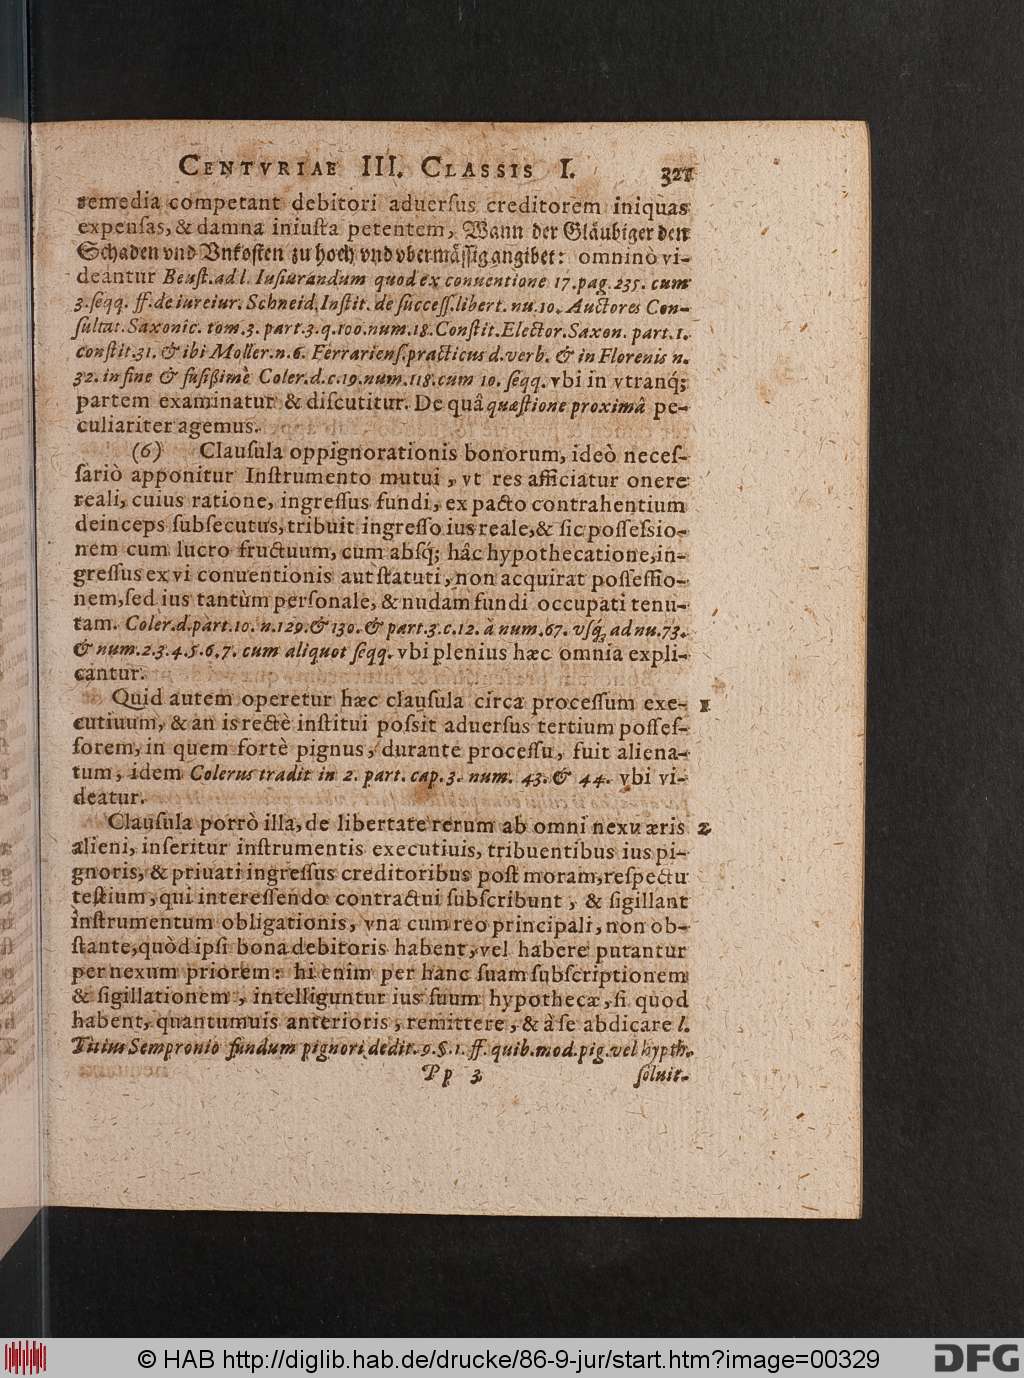 CENTVRIAE III. CLASSIS I. 321
remedia competant debitori aduerſus creditorem iniquas
expenſas, & damna iniuſta petentem, Wann der Gläubiger den
Schaden vnd Vnkoſten zu hoch vnd vbermäſſig angibet: omninò vi-
deantur Beuſt. ad l. Iuſiurandum quod ex conuentione 17. pag. 235. cum
3. ſeqq. ff. de iureiur. Schneid. Inſtit. de ſucceſſ. libert. nu. 10. Auctores Con-
ſultat. Saxonic. tom. 3. part. 3. q. 100. num. 18. Conſtit. Elector. Saxon. part. 1.
conſtit. 31. & ibi Moller. n. 6. Ferrarienſ. practicus d. verb. & in Florenis n.
32. in fine & fuſiſsimè Coler. d. c. 19. num. 118. cum 10. ſeqq. vbi in vtranq́;
partem examinatur & diſcutitur. De quâ quæſtione proximâ pe-
culiariter agemus.
(6) Clauſula oppignorationis bonorum, ideò neceſ-
ſariò apponitur Inſtrumento mutui, vt res afficiatur onere
reali, cuius ratione, ingreſſus fundi, ex pacto contrahentium
deinceps ſubſecutus, tribuit ingreſſo ius reale, & ſic poſſeſsio-
nem cum lucro fructuum, cum abſq́; hâc hypothecatione, in-
greſſus ex vi conuentionis aut ſtatuti, non acquirat poſſeſſio-
nem, ſed ius tantùm perſonale, & nudam fundi occupati tenu-
tam. Coler. d. part. 10. n. 129. & 130. & part. 3. c. 12. à num. 67. vſq́, ad nu. 73.
& num. 2. 3. 4. 5. 6. 7. cum aliquot ſeqq. vbi plenius hæc omnia expli-
cantur.
Quid autem operetur hæc clauſula circa proceſſum exe- 1
cutiuum, & an is rectè inſtitui poſsit aduerſus tertium poſſeſ-
ſorem, in quem fortè pignus, durante proceſſu, fuit aliena-
tum, idem Colerus tradit in 2. part. cap. 3. num. 43. & 44. vbi vi-
deatur.
Clauſula porrò illa, de libertate rerum ab omni nexu æris 2
alieni, inſeritur inſtrumentis executiuis, tribuentibus ius pi-
gnoris, & priuati ingreſſus creditoribus poſt moram, reſpectu
teſtium, qui intereſſendo contractui ſubſcribunt, & ſigillant
inſtrumentum obligationis, vna cum reo principali, non ob-
ſtante, quòd ipſi bona debitoris habent, vel habere putantur
per nexum priorem: hi enim per hanc ſuam ſubſcriptionem
& ſigillationem, intelliguntur ius ſuum hypothecæ, ſi quod
habent, quantumuis anterioris, remittere, & à ſe abdicare l.
Titius Sempronio fundum pignori dedit. 9. §. 1. ff. quib. mod. pig. vel hypth.
Pp 3 ſoluit.
© HAB http://diglib.hab.de/drucke/86-9-jur/start.htm?image=00329
DFG